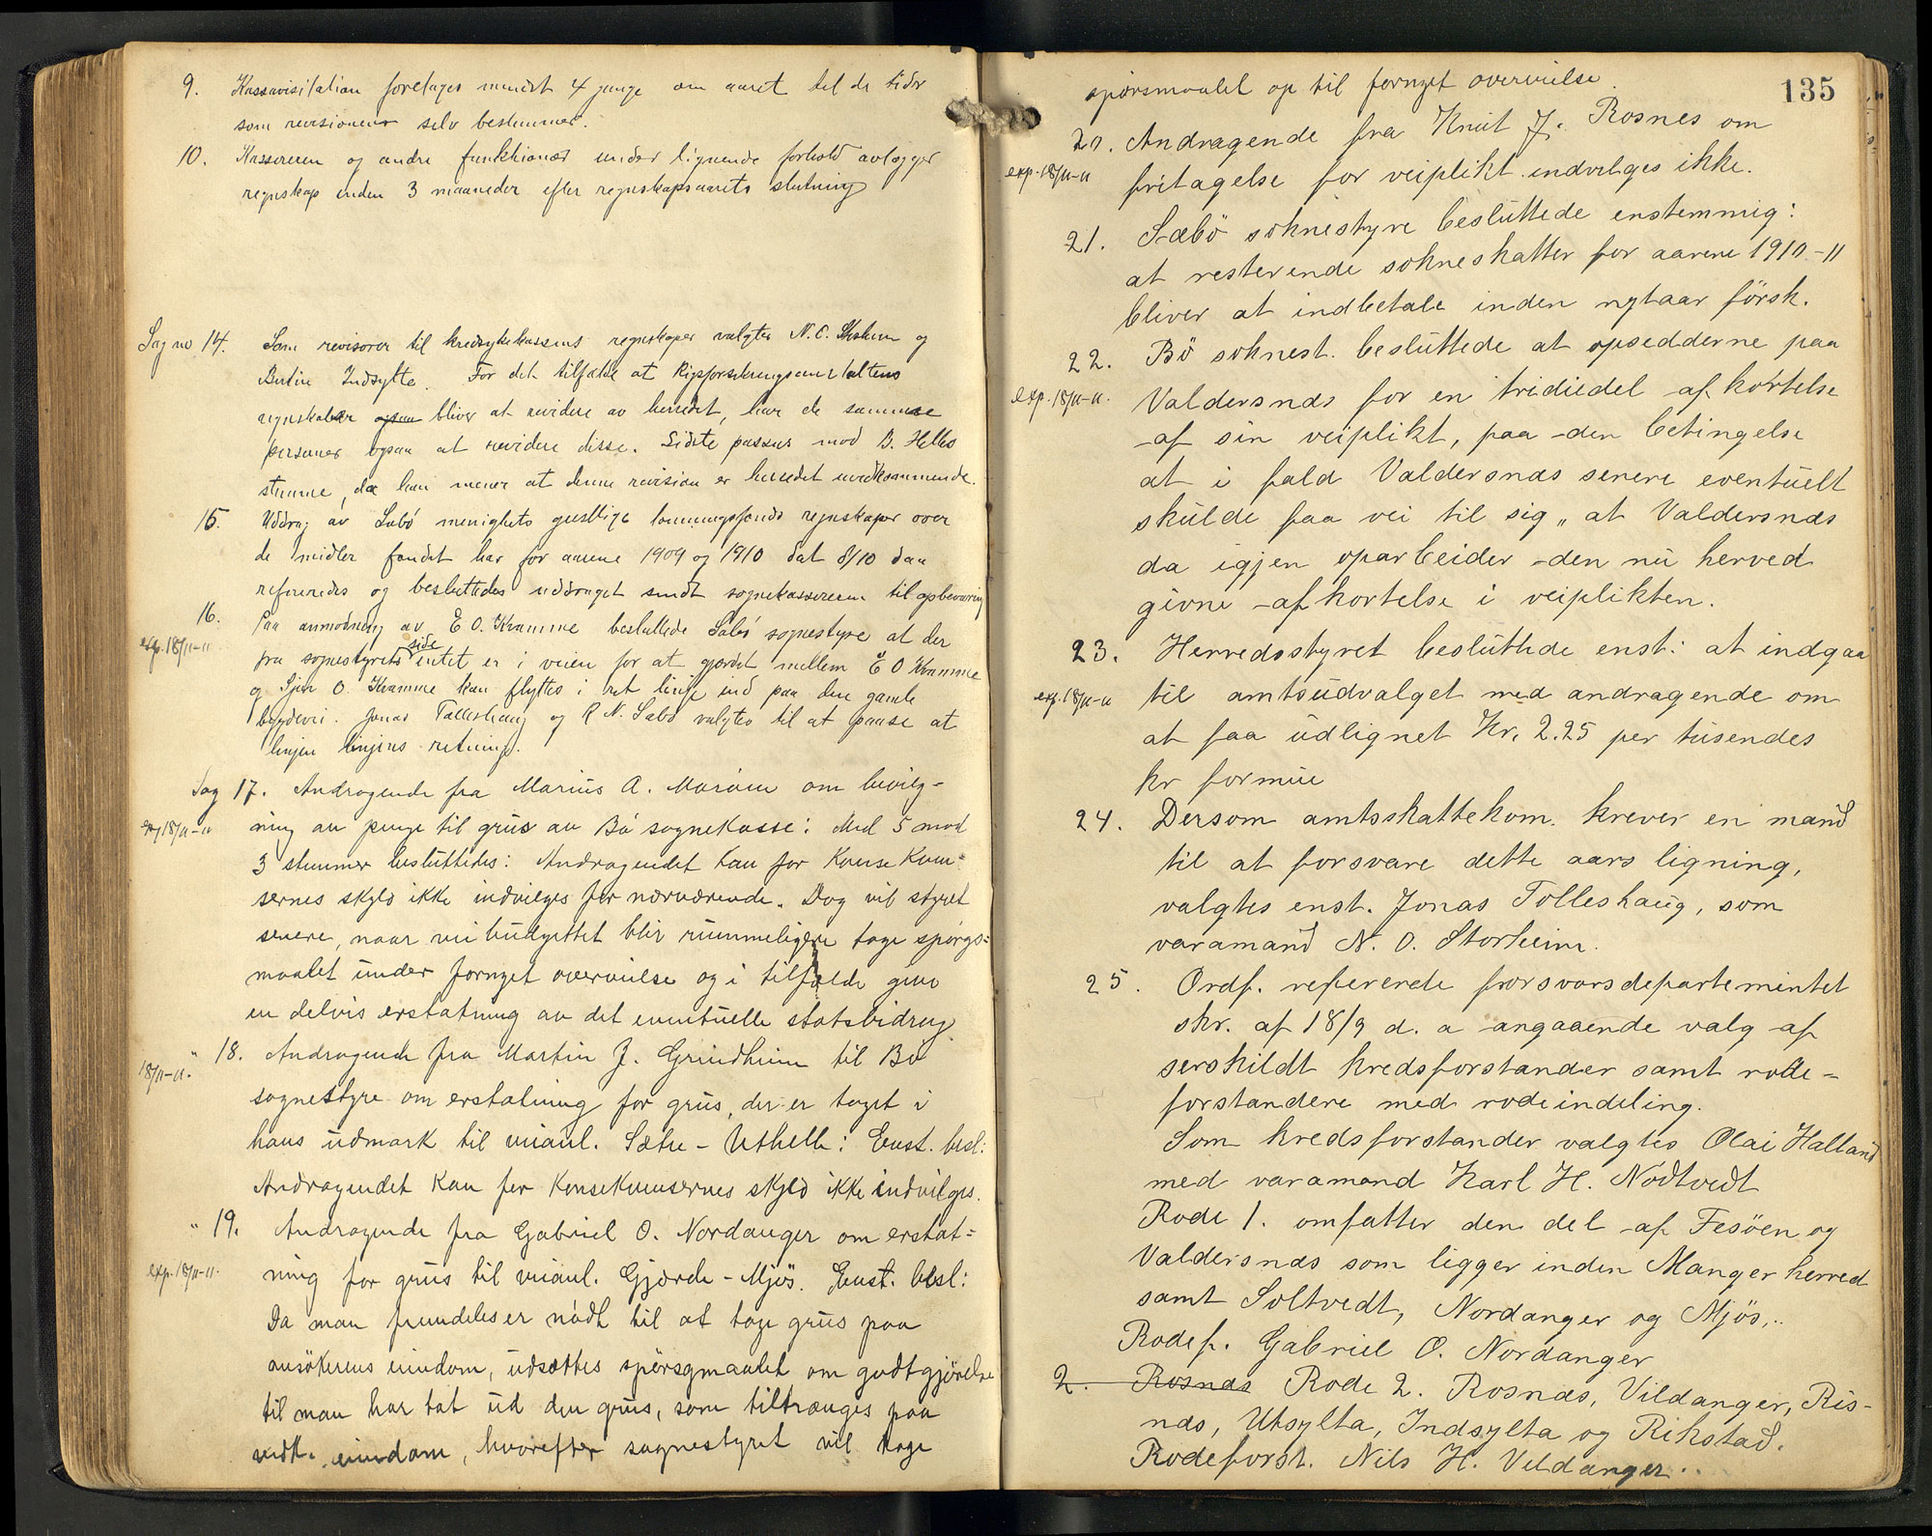 9. Kassavisitation foretages mindst 4 gange om aaret til de tider
som revisionen selv bestemmer.
10. Kassereren og andre funktionær under lignende forhold avlægger
regnskap inden 3 maaneder efter regnskapsaarets slutning
Sag no 14. Som revisorer til kredssykekassens regnskaper valgtes N. O. Storheim og
Bertin Indsylte. For det tilfælde at Rigsforsikringsanstaltens
regnskaber ogsaa bliver at revidere av herredet, har de samme
personer ogsaa at revidere disse. Sidste passus mod B. Helles
stemme, da han mener at denne revision er herredet uvedkommende.
15. Uddrag av Sæbö menighets geistlige lönningsfonds regnskaper over
de midler fondet har for aarene 1909 og 1910 dat 8/10 d aa
refereredes og besluttedes uddraget sendt sognekassereren til opbevaring
16. Paa anmodning av E O. Kvamme besluttede Sæbö sognestyre at der
exp. 18/11-11
fra sognestyrets side intet er i veien for at gjærdet mellem E O Kvamme
og Sjur O. Kvamme kan flyttes i ret linje ind paa den gamle
bygdevei. Jonas Tolleshaug og R N. Sæbö valgtes til at paase at
linjen linjens retning.
Sag 17. Andragende fra Marius A. Maröen om bevilg-
exp 18/11-11
ning av penge til grus av Bö sognekasse: Med 5 mod
3 stemmer besluttedes: Andragendet kan for konse kven-
sernes skyld ikke indvilges for nærværende. Dog vil styret
senere, naar veibudgettet blir rummeligere tage spörgs-
maalet under fornyet overveielse og i tilfælde give
en delvis erstatning av det eventuelle statsbidrag
" 18. Andragende fra Martin J. Grindheim til Bö
18/11-11.
sognestyre om erstatning for grus, der er taget i
hans udmark til veianl. Sætre - Uthelle: Enst. besl:
Andragendet kan for konsekvensernes skyld ikke indvilges.
" 19. Andragende fra Gabriel O. Nordanger om erstat-
exp. 18/11-11.
ning for grus til veianl. Gjærde - Mjös. Enst. besl:
Da man fremdeles er nödt til at tage grus paa
ansökerens eiendom, udsættes spörsgmaalet om godtgjörelse
til man har tat ud den grus, som tiltrænges paa
vedk. eiendom, hvorefter sognestyret vil tage
135
spörsmaalet op til fornyet overveielse.
20. Andragende fra Knut J. Rosnes om
exp. 18/11-11
fritagelse for veiplikt indvilges ikke.
21. Sæbö soknestyre besluttede enstemmig:
at resterende sokneskatter for aarene 1910-11
bliver at indbetale inden nytaar försk.
22. Bö soknest. besluttede at opsedderne paa
exp. 18/11-11.
Valdersnæs for en trediedel afkortelse
af sin veiplikt, paa den betingelse
at i fald Valdersnæs senere eventuelt
skulde faa vei til sig „ at Valdersnæs
da igjen oparbeider den nu herved
givne afkortelse i veiplikten.
23. Herredsstyret besluttede enst: at indgaa
exp. 18/11-11
til amtsudvalget med andragende om
at faa udlignet Kr. 2.25 per tusendes
kr formue
24. Dersom amtsskattekom. krever en mand
til at forsvare dette aars ligning,
valgtes enst. Jonas Tolleshaug, som
varamand N. O. Storheim.
25. Ordf. refererede forsvarsdepartementet
skr. af 18/9 d. a angaaende valg af
serskildt kredsforstander samt rode-
forstandere med rodeindeling.
Som kredsforstander valgtes Olai Halland
med varamand Karl H. Nödtvedt
Rode 1. omfatter den del af Fesöen og
Valdersnæs som ligger inden Manger herred
samt Soltvedt, Nordanger og Mjös,..
Rodef. Gabriel O. Nordanger
2. Rosnæs Rode 2. Rosnæs, Vildanger, Ris-
næs, Utsylta, Indsylta og Rikstad.
Rodeforst. Nils H. Vildanger.